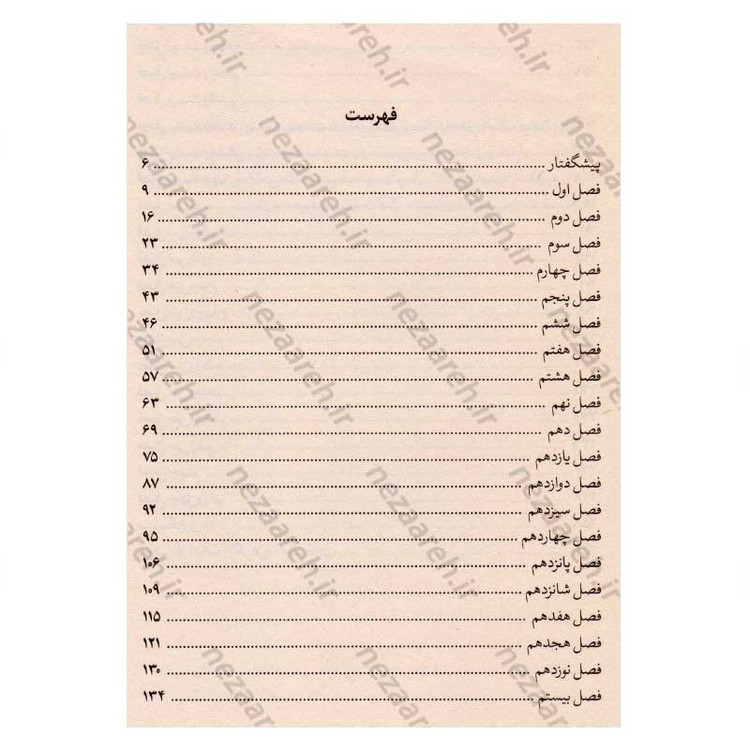 فهرست
پیشگفتار ........ ۶
فصل اول ........ ۹
فصل دوم ........ ۱۶
فصل سوم ........ ۲۳
فصل چهارم ........ ۳۴
فصل پنجم ........ ۴۳
فصل ششم ........ ۴۶
فصل هفتم ........ ۵۱
فصل هشتم ........ ۵۷
فصل نهم ........ ۶۳
فصل دهم ........ ۶۹
فصل یازدهم ........ ۷۵
فصل دوازدهم ........ ۸۷
فصل سیزدهم ........ ۹۲
فصل چهاردهم ........ ۹۵
فصل پانزدهم ........ ۱۰۶
فصل شانزدهم ........ ۱۰۹
فصل هفدهم ........ ۱۱۵
فصل هجدهم ........ ۱۲۱
فصل نوزدهم ........ ۱۳۰
فصل بیستم ........ ۱۳۴
nezaareh.ir